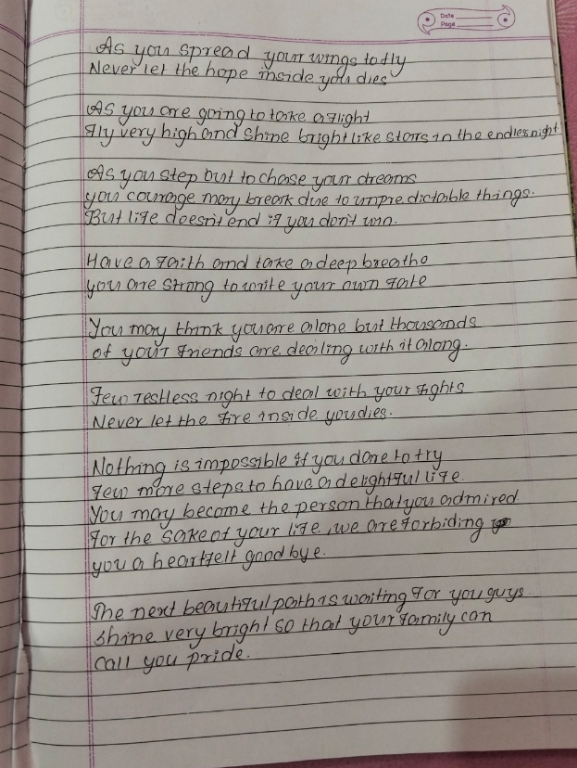 Date
Page
As you spread your wings to fly
Never let the hope inside you dies
As you are going to take a flight
Fly very high and shine bright like stars in the endles night
As you step out to chase your dreams
you courage may break due to unpredictable things.
But life doesn't end if you don't win.
Have a faith and take a deep breathe
you are strong to write your own fate
You may think you are alone but thousands
of your friends are dealing with it along.
Few restless night to deal with your fights
Never let the fire inside you dies.
Nothing is impossible if you dare to try
Few more steps to have a delightful life.
You may become the person that you admired
For the sake of your life, we are forbiding
you a heartfelt good bye.
The next beautiful path is waiting for you guys
shine very bright so that your family can
call you pride.